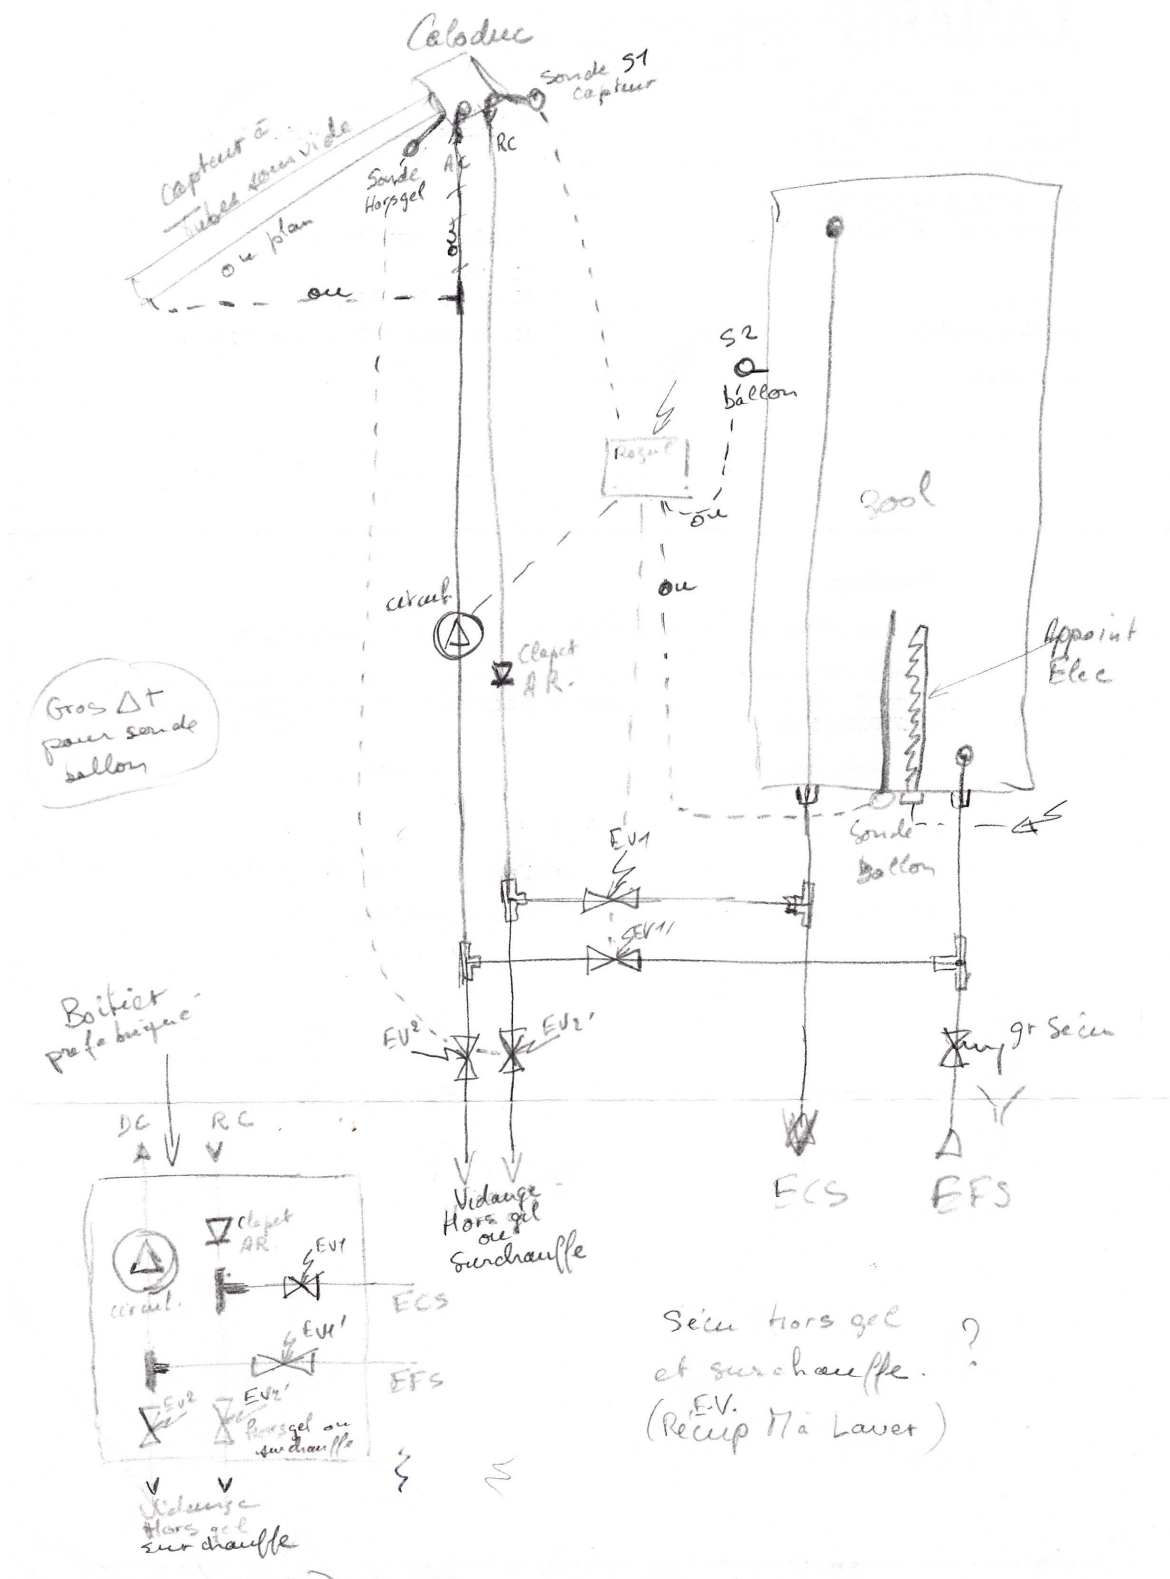 Caloduc
Sonde S1
capteur
capteur à
Tubes sous vide
ou plan
Sonde
Horsgel
AC
RC
ou
ou
S2
ballon
Regul
ou
ou
300l
circul
Clapet
A R.
Appoint
Elec
Gros Δt
pour sonde
ballon
Sonde
Ballon
EV1
EV1'
EV2
EV2'
gr Sécu
Boîtier
préfabriqué
DC
RC
ECS
EFS
Vidange
Hors gel
ou
Surchauffe
Clapet
AR.
EV1
circul.
ECS
EV1'
EFS
EV2
EV2'
Horsgel ou
surchauffe
Vidange
Hors gel
surchauffe
Sécu Hors gel
et surchauffe. ?
E.V.
(Récup M à Laver)